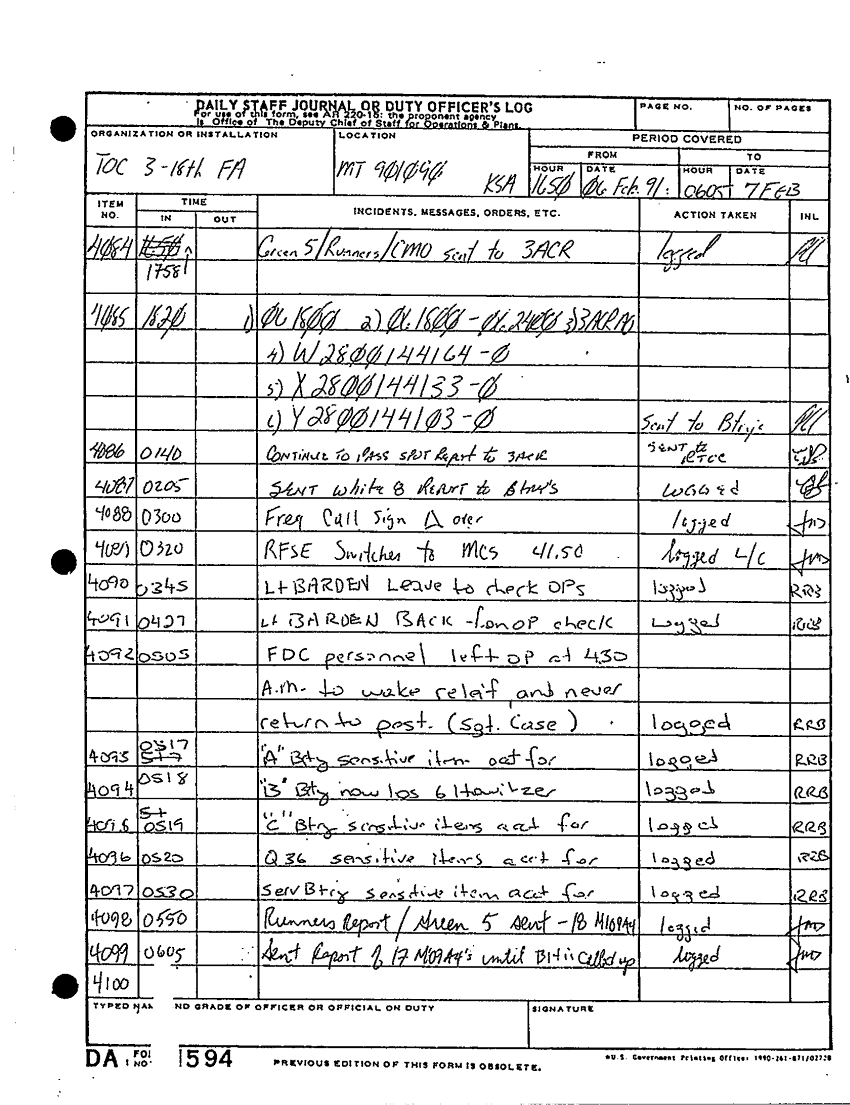 DAILY STAFF JOURNAL OR DUTY OFFICER'S LOG
For use of this form, see AR 220-15: the proponent agency
is Office of The Deputy Chief of Staff for Operations & Plans.
PAGE NO.
NO. OF PAGES
ORGANIZATION OR INSTALLATION
TOC 3-18th FA
LOCATION
MT 901090 KSA
PERIOD COVERED
FROM
TO
HOUR DATE HOUR DATE
1650 06 Feb. 91 0605 7 FEB
ITEM NO. TIME INCIDENTS, MESSAGES, ORDERS, ETC. ACTION TAKEN INL
IN OUT
4084 1758 Green 5/Runners/CMO sent to 3ACR logged
4085 1820 1) 061800 2) 061800-062400 3) 3ACR
4) W2800144164-0
5) X2800144133-0
6) Y2800144103-0 Sent to Btry's
4086 0140 CONTINUE TO PASS SPOT Report to 3ACR SENT to
4087 0205 SENT White 8 REPORT to Btry's LOGGED
4088 0300 Freq Call Sign Δ over logged
4089 0320 RFSE Switches to MCS 41.50 logged L/C
4090 0345 Lt BARDEN Leave to check OPs logged RRB
4091 0427 Lt BARDEN BACK from OP check Logged RRB
4092 0505 FDC personnel left OP at 430
A.m. to wake releif and never
return to post. (Sgt. Case) logged RRB
4093 0517 "A" Bty sensitive item acct for logged RRB
4094 0518 "B" Bty now 6 Howitzer logged RRB
4095 0519 "C" Btry sensitive items acct for logged RRB
4096 0520 Q36 sensitive items acct for logged RRB
4097 0530 Serv Btry sensitive item acct for logged RRB
4098 0550 Runners Report / Green 5 sent - 18 M109A4 logged
4099 0605 Sent Report of 17 M109A4's until is Called up logged
4100
TYPED NAM ND GRADE OF OFFICER OR OFFICIAL ON DUTY
SIGNATURE
DA 1594
PREVIOUS EDITION OF THIS FORM IS OBSOLETE.
*U.S. Government Printing Office: 1990-261-871/02728